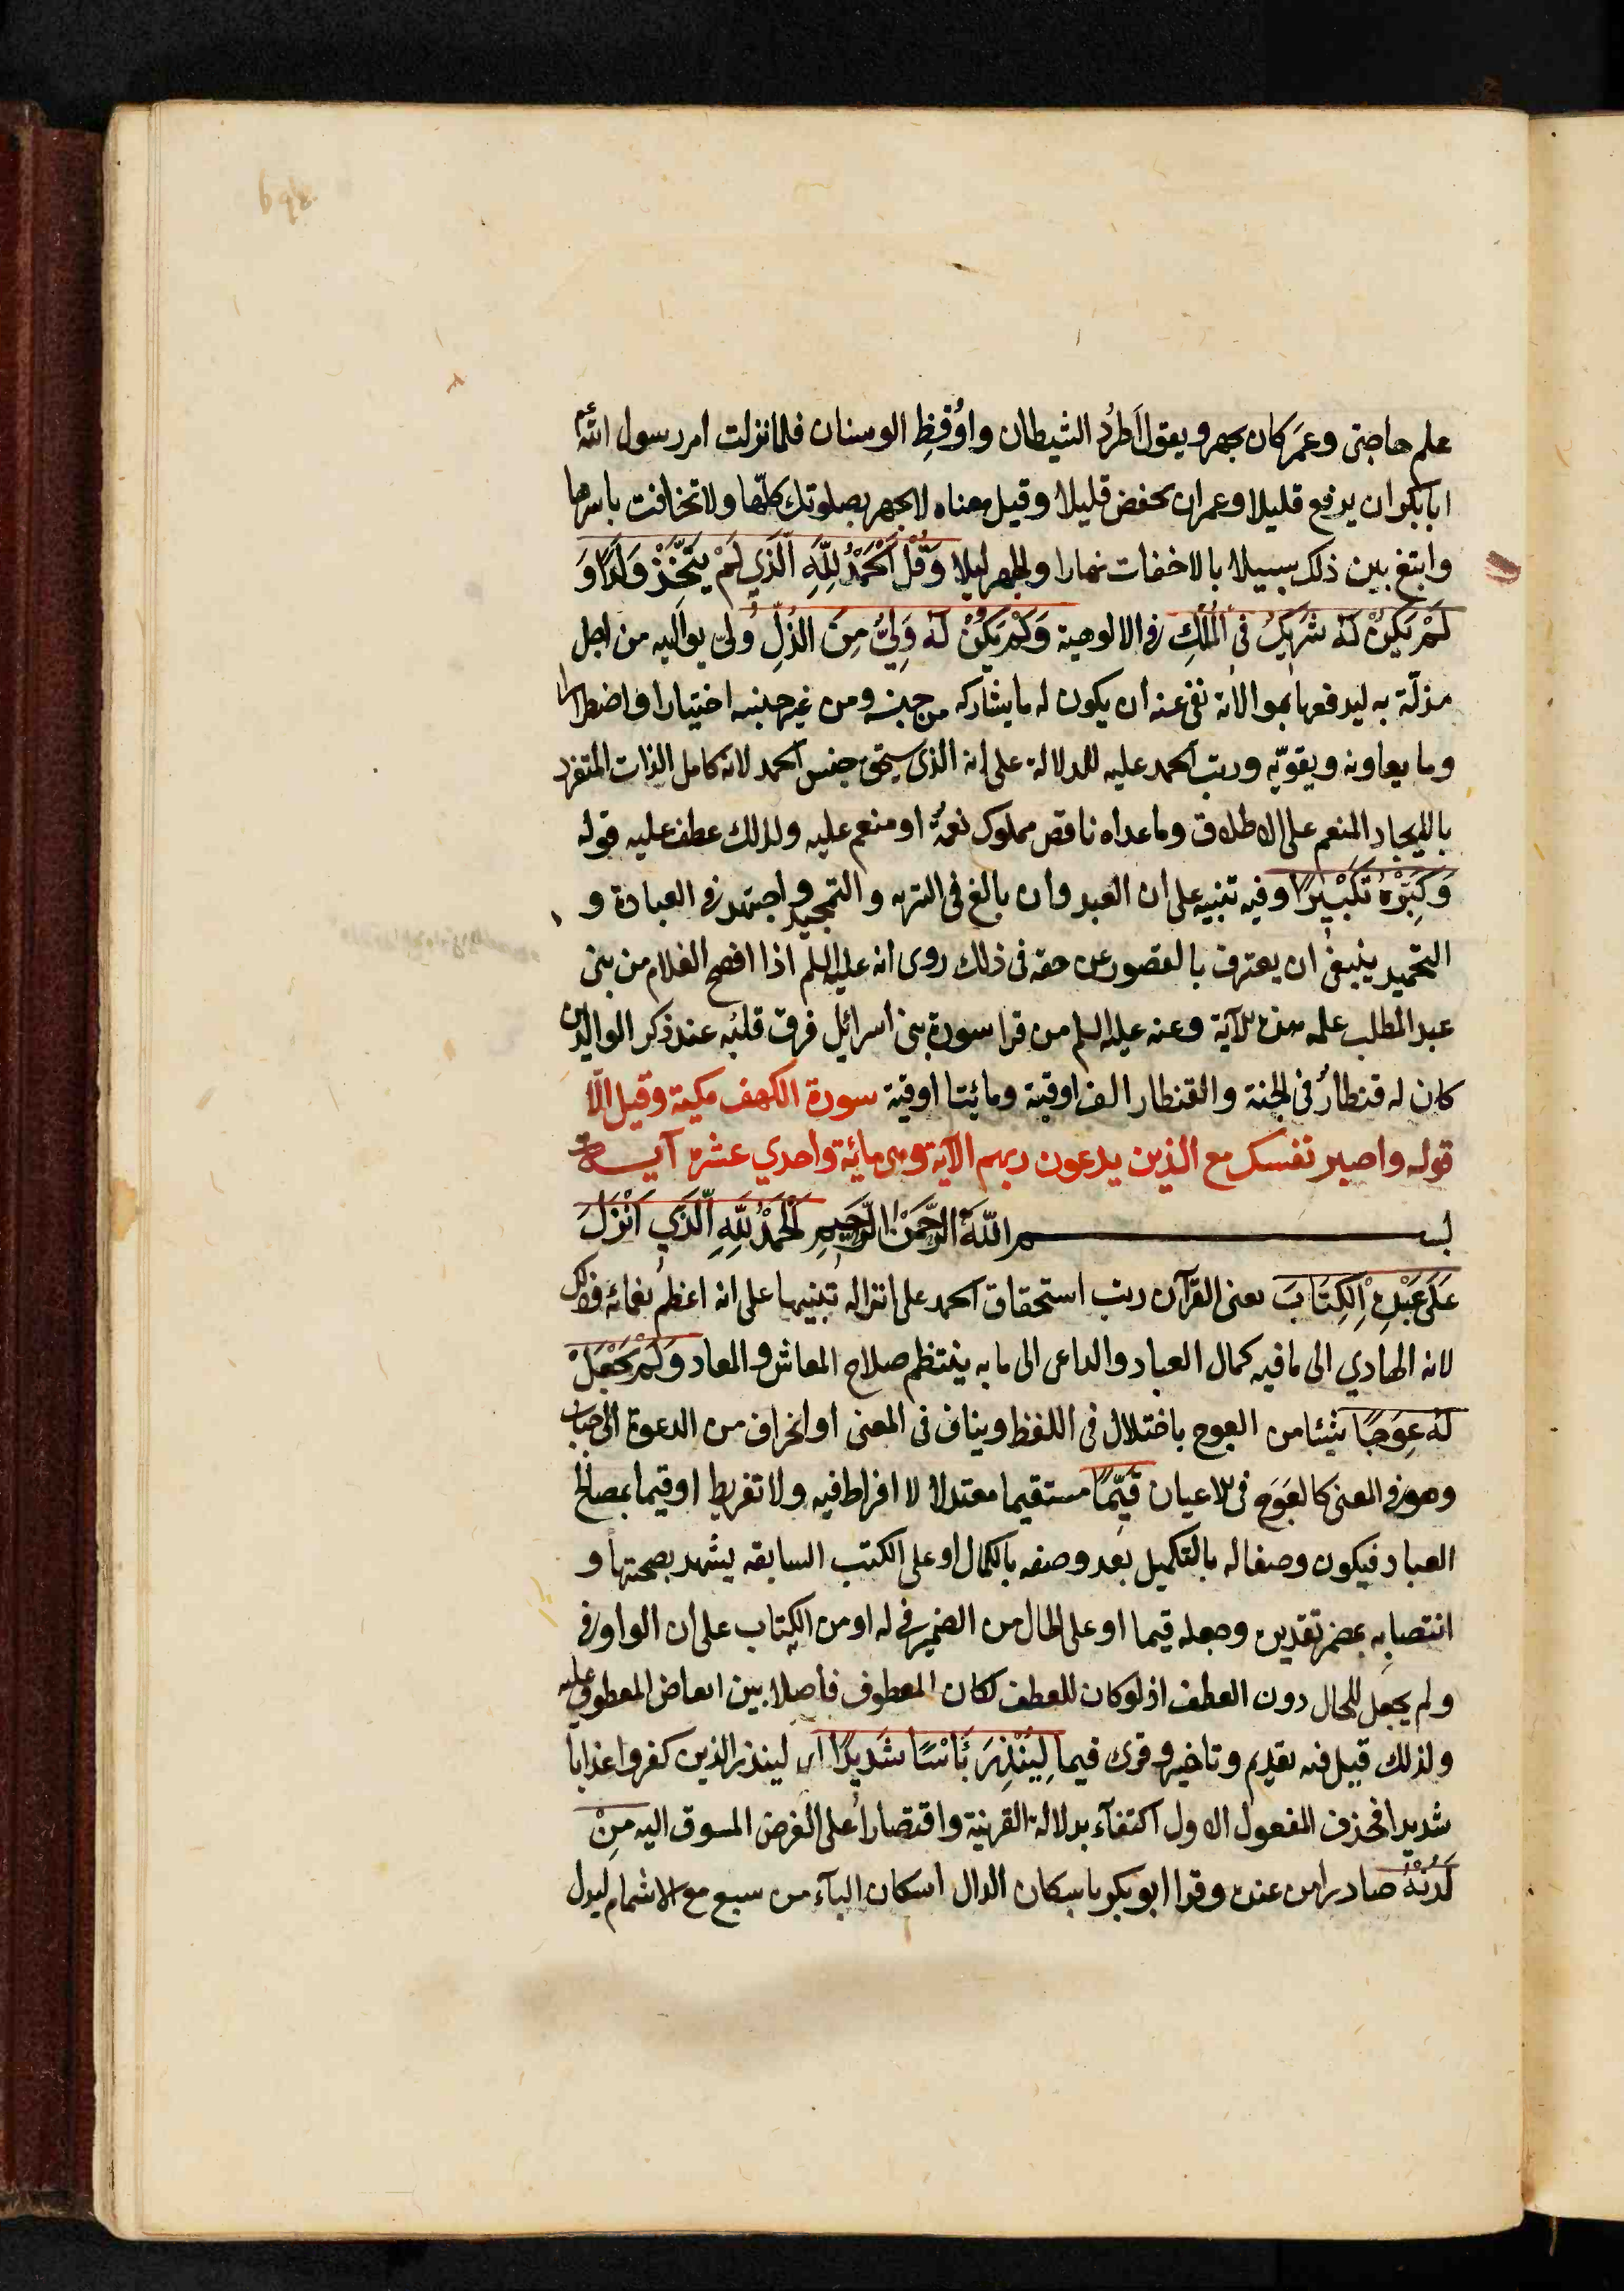 علم حاجتى وعمر كان يجهر ويقول اَطرُد الشيطان واوُقِظِ الوسنان فلما نزلت امر رسول الله
ابا بكر ان يرفع قليلا وعمر ان يخفض قليلا وقيل معناه لا تجهر بصلوتك كلّها ولا تخافت باسرها
وابتغ بين ذلك سبيلا بالاخفات نهارا والجهر ليلا وَقُلْ اَلْحَمْدُ لِلّهِ الَّذي لَمْ يَتَّخِذْ وَلَدًا وَ
لَمْ يَكُنْ لَهُ شَرِيكُ فى الْمُلْكِ فى الالوهية وَلَمْ يَكُنْ لَهُ وَلِيُّ مِنَ الذُلِّ ولى يواليه من اجل
مذلّة به ليدفعها بموالاته نفى عنه ان يكون له ما يشاركه من جنسه ومن غير جنسه اختيارا واضطرارا
وما يعاونه ويقوّيه ورتب الحمد عليه للدلالة على انه الذى يستحق جنس الحمد لانه كامل الذات المتفرد
بالايجاد المنعم على الاطلاق وما عداه ناقص مملوك نعمة او منعم عليه ولذلك عطف عليه قوله
وَكَبِّرْهُ تَكْبِيرًا وفيه تنبيه على ان العبد وان بالغ فى التنزيه والتمجيد واجتهد فى العبادة و
التحميد ينبغى ان يعترف بالقصور عن حقه فى ذلك روى انه عليه السلم اذا افصح الغلام من بنى
عبد المطلب علمه هذه الآية وعنه عليه السلم من قرا سورة بنى اسرائيل فرق قلبُه عند ذكر الوالدين
كان له قنطارُ فى الجنة والقنطار الف اوقية ومائتا اوقية سورة الكهف مكية وقيل الّا
قوله واصبر نفسك مع الذين يدعون ربهم الآية وهى مائة واحدي عشرة آيــة
بســـــم اللّه الرَّحْمَنِ الرَّحِيمِ اَلْحَمْدُ لِلّهِ الَّذي اَنْزَلَ
عَلَى عَبْدِهِ الْكِتَابَ يعنى القرآن رتب استحقاق الحمد على انزاله تنبيها على انه اعظم نعمائه وذلك
لانه الهادي الى ما فيه كمال العباد والداعى الى ما به ينتظم صلاح المعاش والمعاد وَلَمْ يَجْعَلْ
لَهُ عِوَجًا شيئا من العوج باختلال فى اللفظ ويناف فى المعنى او انحراف من الدعوة الى جناب
وهو فى المعنى كالعَوَج فى الاعيان قَيِّمًا مستقيما معتدلا لا افراط فيه ولا تفريط او قيما بمصالح
العباد فيكون وصفا له بالتكميل بعد وصفه بالكمال او على الكتب السابقه يشهد بصحتها و
انتصابه بمضمر تقديره وجعله قيما او على الحال من الضمير فى له او من الكتاب على ان الواو فى
ولم يجعل للحال دون العطف اذ لو كان للعطف لكان المعطوف فاصلا بين ابعاض المعطوف عليه
ولذلك قيل فيه تقديم وتاخير وقرى قيما لِيُنْذِرَ بَأْسًا شَدِيدًا اى لينذر الذين كفروا عذابا
شديدا فحذف المفعول الاول اكتفاء بدلالة القرينة واقتصارا على الغرض المسوق اليه مِنْ
لَدُنْهُ صادرا من عنده وقرا ابو بكر باسكان الدال اسكان الباء من سبع مع الاشمام ليدل